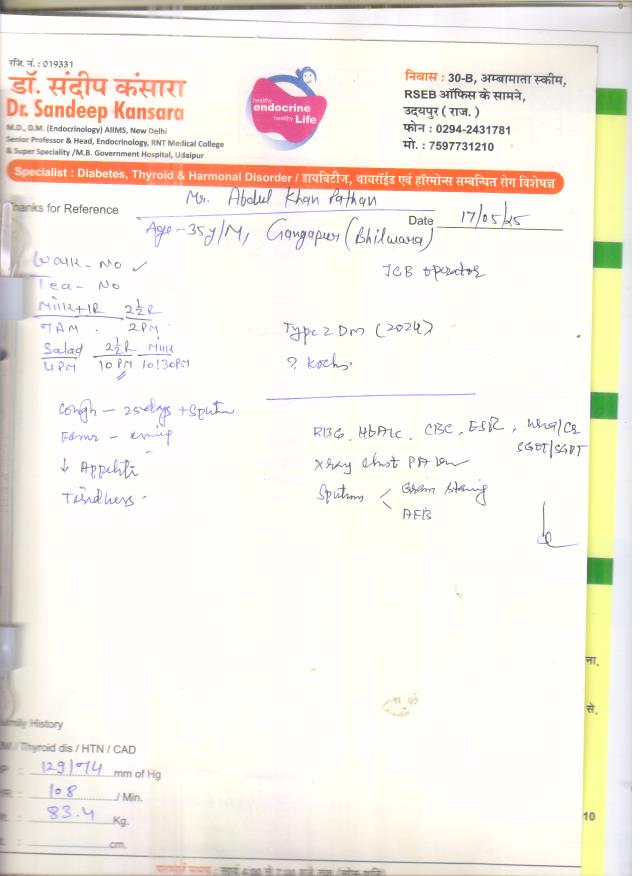 रजि. नं. : 019331
डॉ. संदीप कंसारा
Dr. Sandeep Kansara
M.D., D.M. (Endocrinology) AIIMS, New Delhi
Senior Professor & Head, Endocrinology, RNT Medical College
& Super Speciality /M.B. Government Hospital, Udaipur
healthy
endocrine
healthy
Life
निवास : 30-B, अम्बामाता स्कीम,
RSEB ऑफिस के सामने,
उदयपुर ( राज. )
फोन : 0294-2431781
मो. : 7597731210
Specialist : Diabetes, Thyroid & Harmonal Disorder / डायबिटीज, थायरॉईड एवं हॉरमोन्स सम्बन्धित रोग विशेषज्ञ
Thanks for Reference Mr. Abdul Khan Pathan
Date 17/05/25
Age - 35y/M, Gangapur (Bhilwara)
Walk - No ✓
JCB operator
Tea - No
Milk+1R 2½R
7AM . 2PM
Salad 2½R Milk
4PM 10PM 10:30PM
Type 2 DM (2024)
? Kochs
Cough - 25 days + Sputum
Fever - evening
↓ Appetite
Tiredness
RBG, HbA1c, CBC, ESR, Urea/Cr
SGOT/SGPT
Xray Chest PA View
Sputum < Gram Staining
AFB
ना,
से,
Family History
DM / Thyroid dis / HTN / CAD
BP : 129/74 mm of Hg
: 108 / Min.
: 83.4 Kg.
: cm.
10